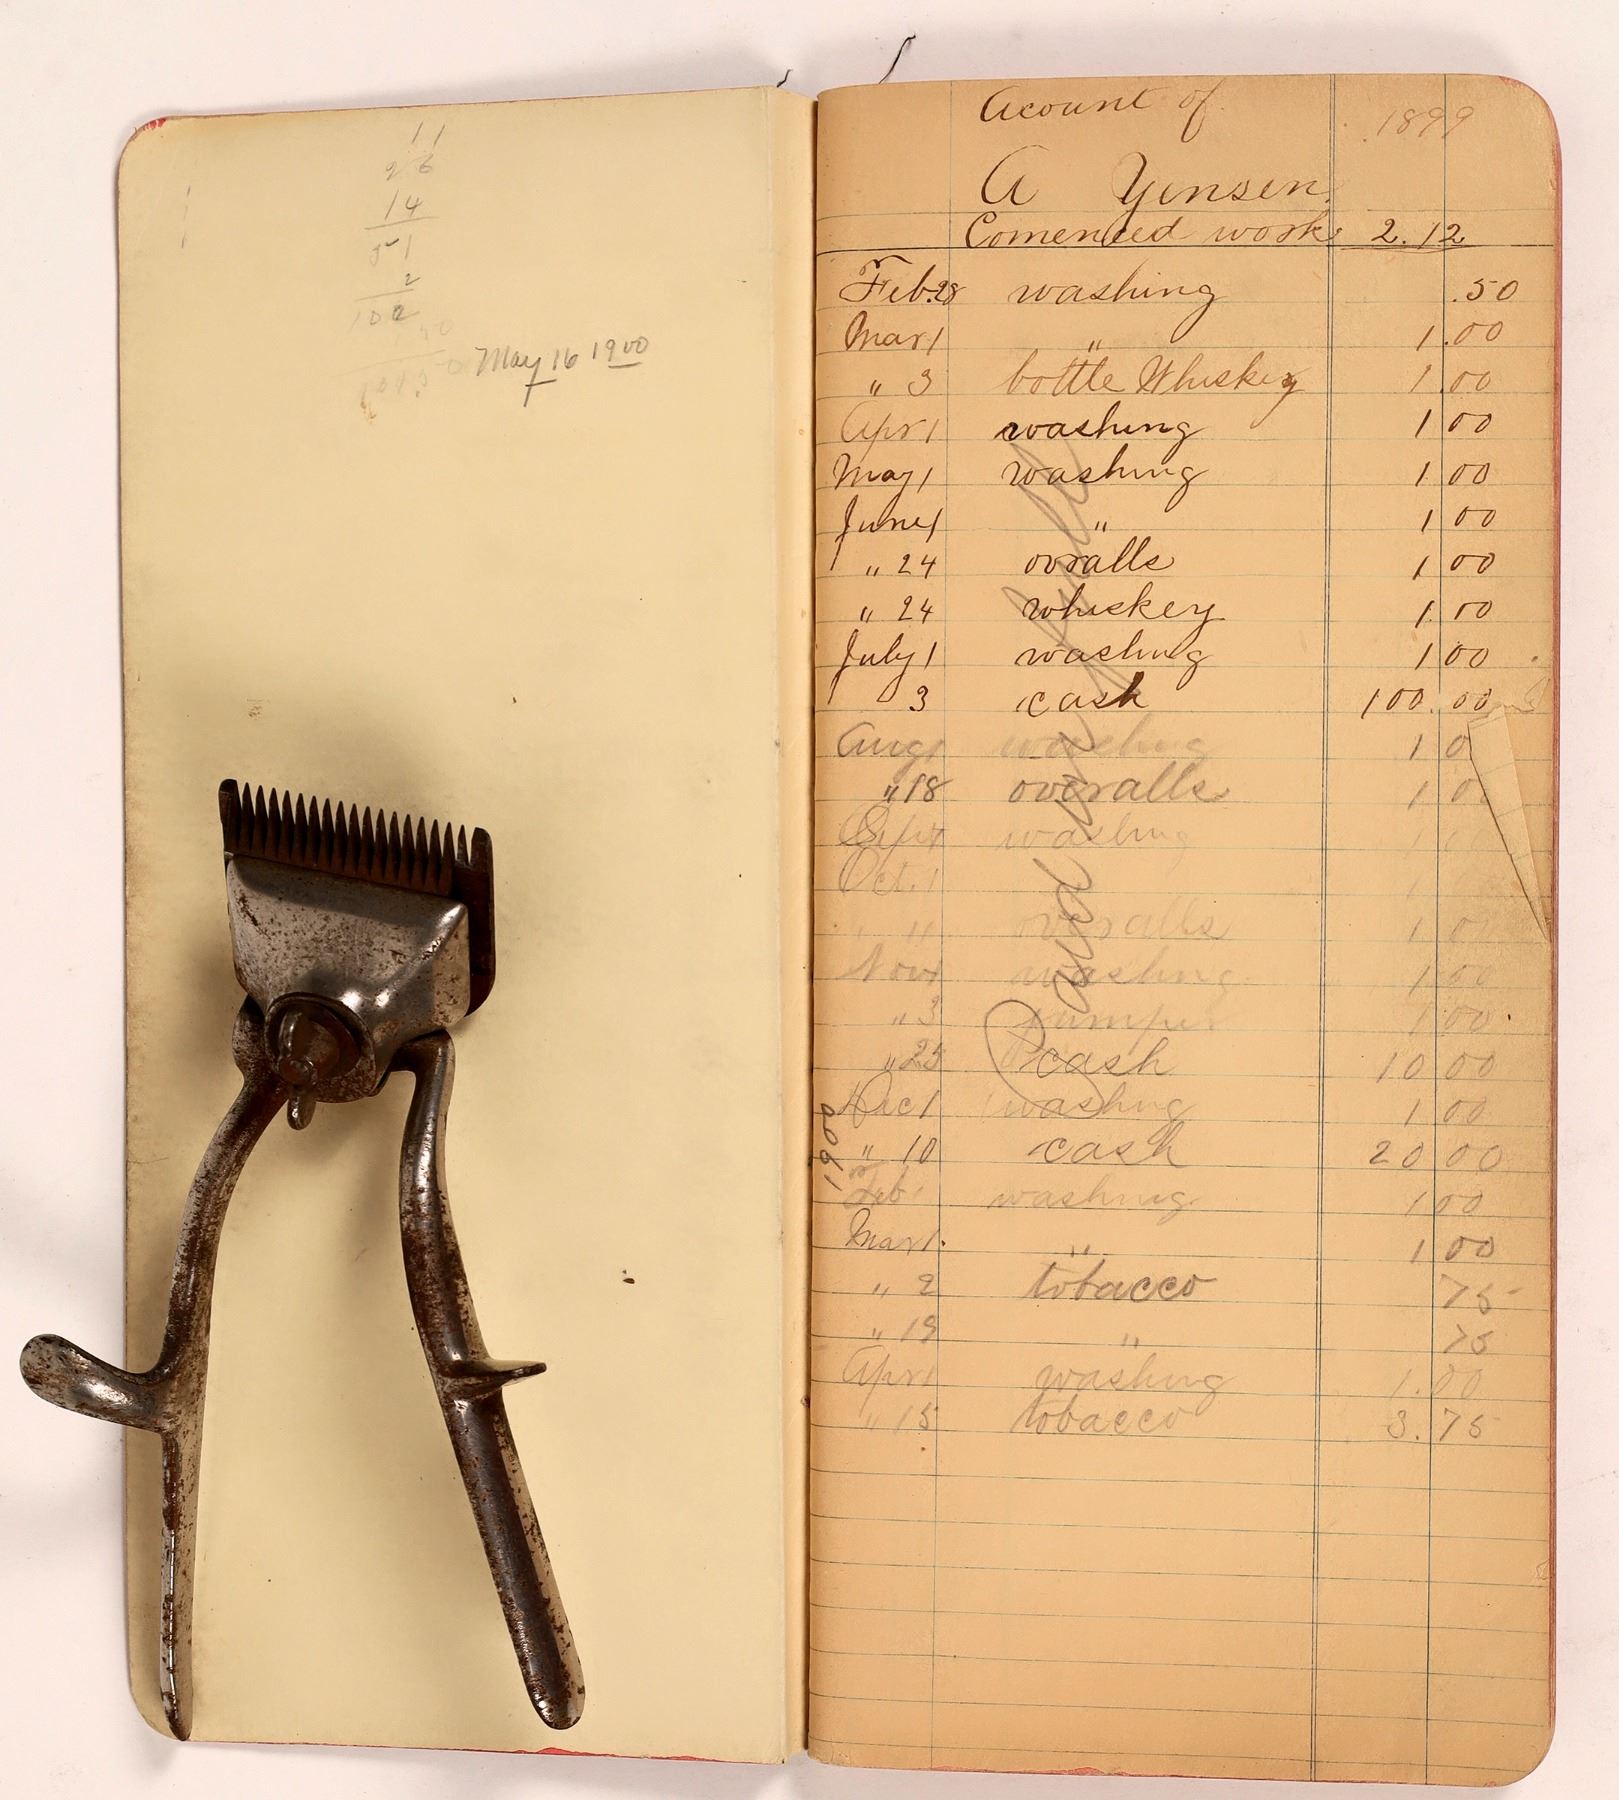 11
26
14
51
2
102
May 16 1900
Acount of 1899
A Yensen
Comenced work 2.12
Feb.28 washing .50
Mar 1 " 1.00
" 3 bottle Whiskey 1.00
Apr 1 washing 1 00
May 1 washing 1 00
June 1 " 1 00
" 24 ovralls 1 00
" 24 whiskey 1.00
July 1 washing 1 00
3 cash 100.00
Aug 1 washing 1 0
" 18 overalls 1 00
Sept 1 washing 1 00
Oct. 1 1
" " overalls 1 00
Nov 1 washing 1 00
" 3 jumper 1 00
" 25 cash 10 00
Dec 1 washing 1 00
" 10 cash 20 00
1900
Feb 1 washing 1 00
Mar 1. " 1 00
" 2 tobacco 75
" 19 " 75
Apr 1 washing 1.00
" 15 tobacco 3.75
Paid in full